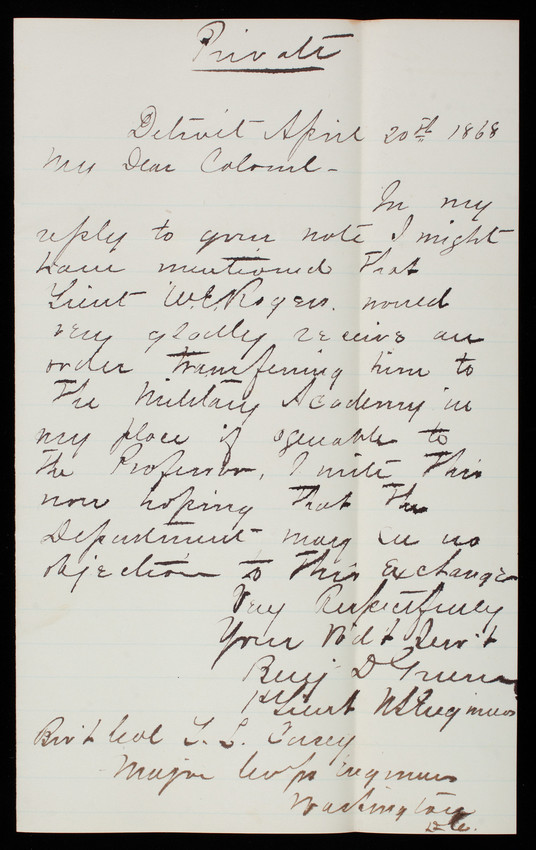 Private
Detroit April 20th 1868
My Dear Colonel -
In my
reply to your note I might
have mentioned that
Lieut W.C. Rogers. would
very gladly receive an
order transferring him to
the Military Academy in
my place if agreeable to
the Professor, I write this
now hoping that the
Department may see no
objection to this exchange
Very Respectfully
Your Obdt Servt
Benj D Greene
1st Lieut US Engineers
Bvt Col T. L. Casey
Major Corps Engineers
Washington
D.C.